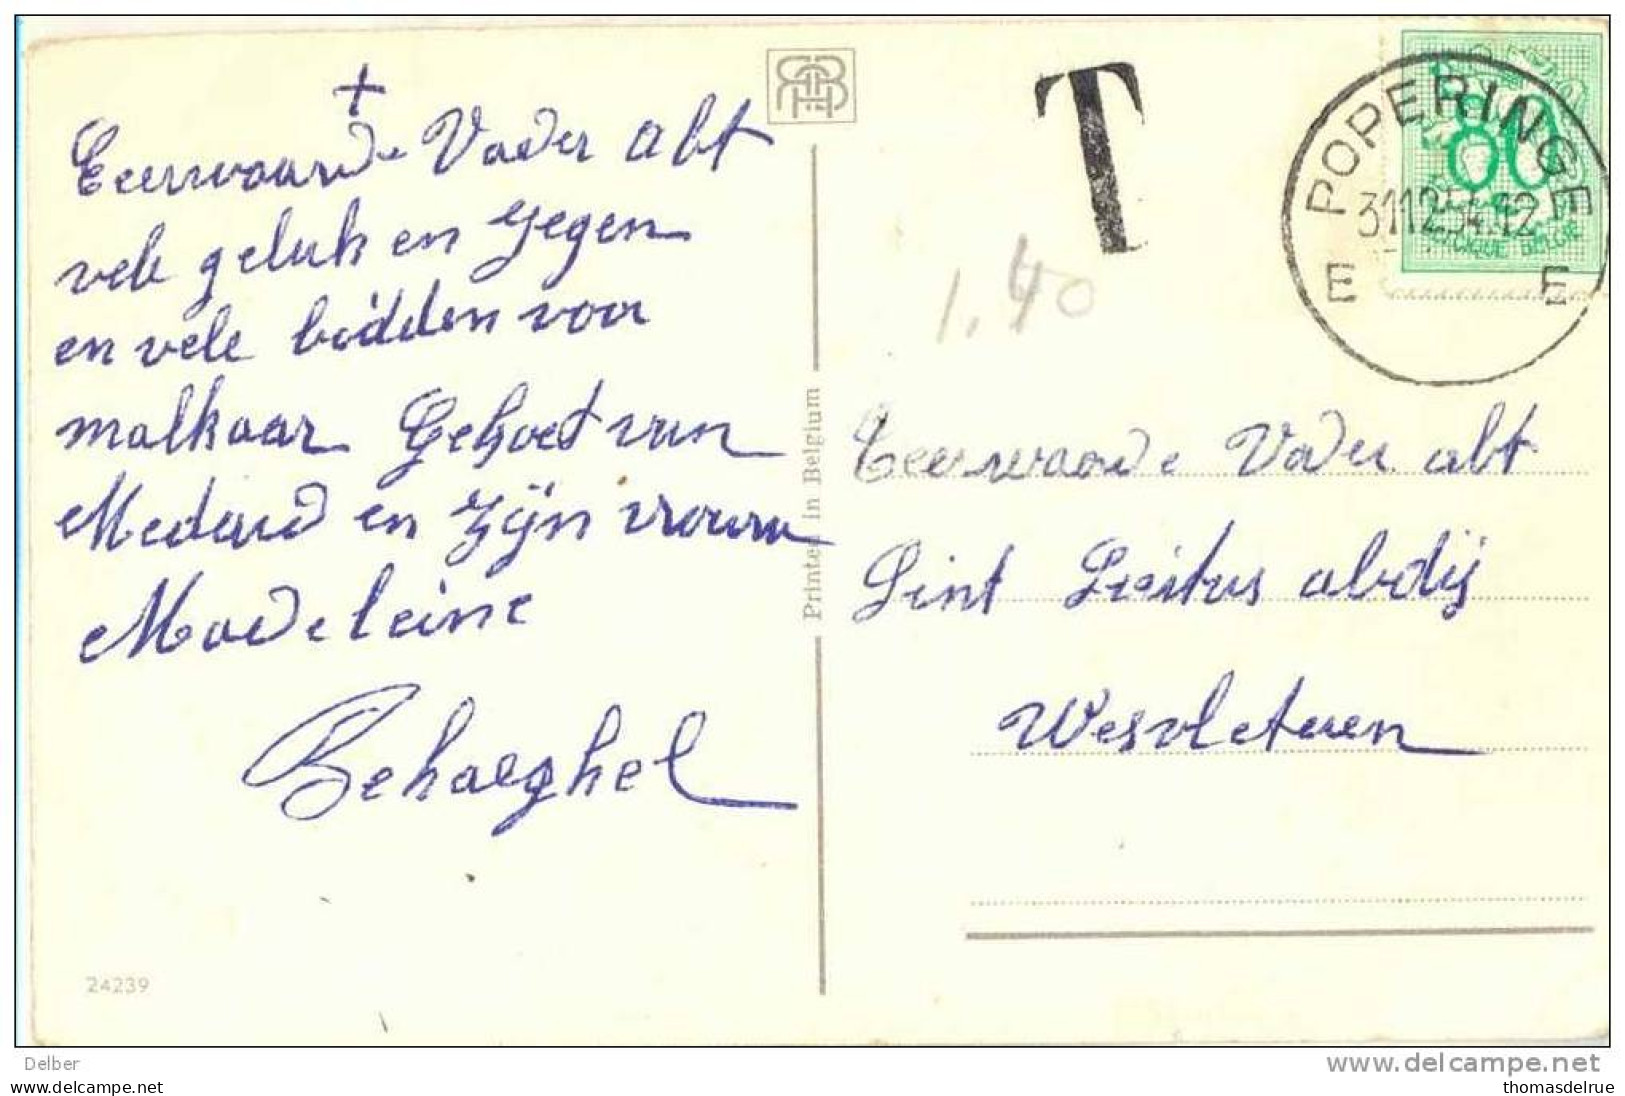 +
Eeerwaarde Vader Abt
vele geluk en zegen
en vele bidden voor
malkaar Gehoet van
Medard en zijn vrouw
Madeleine
Behaeghel
24239
Printed in Belgium
T
1.40
POPERINGE
31 12 54.12
E E
80
BELGIQUE BELGIE
Eeerwaarde Vader abt
Sint Sixtus abdij
Wesvleteren
Delber
www.delcampe.net
thomasdelrue